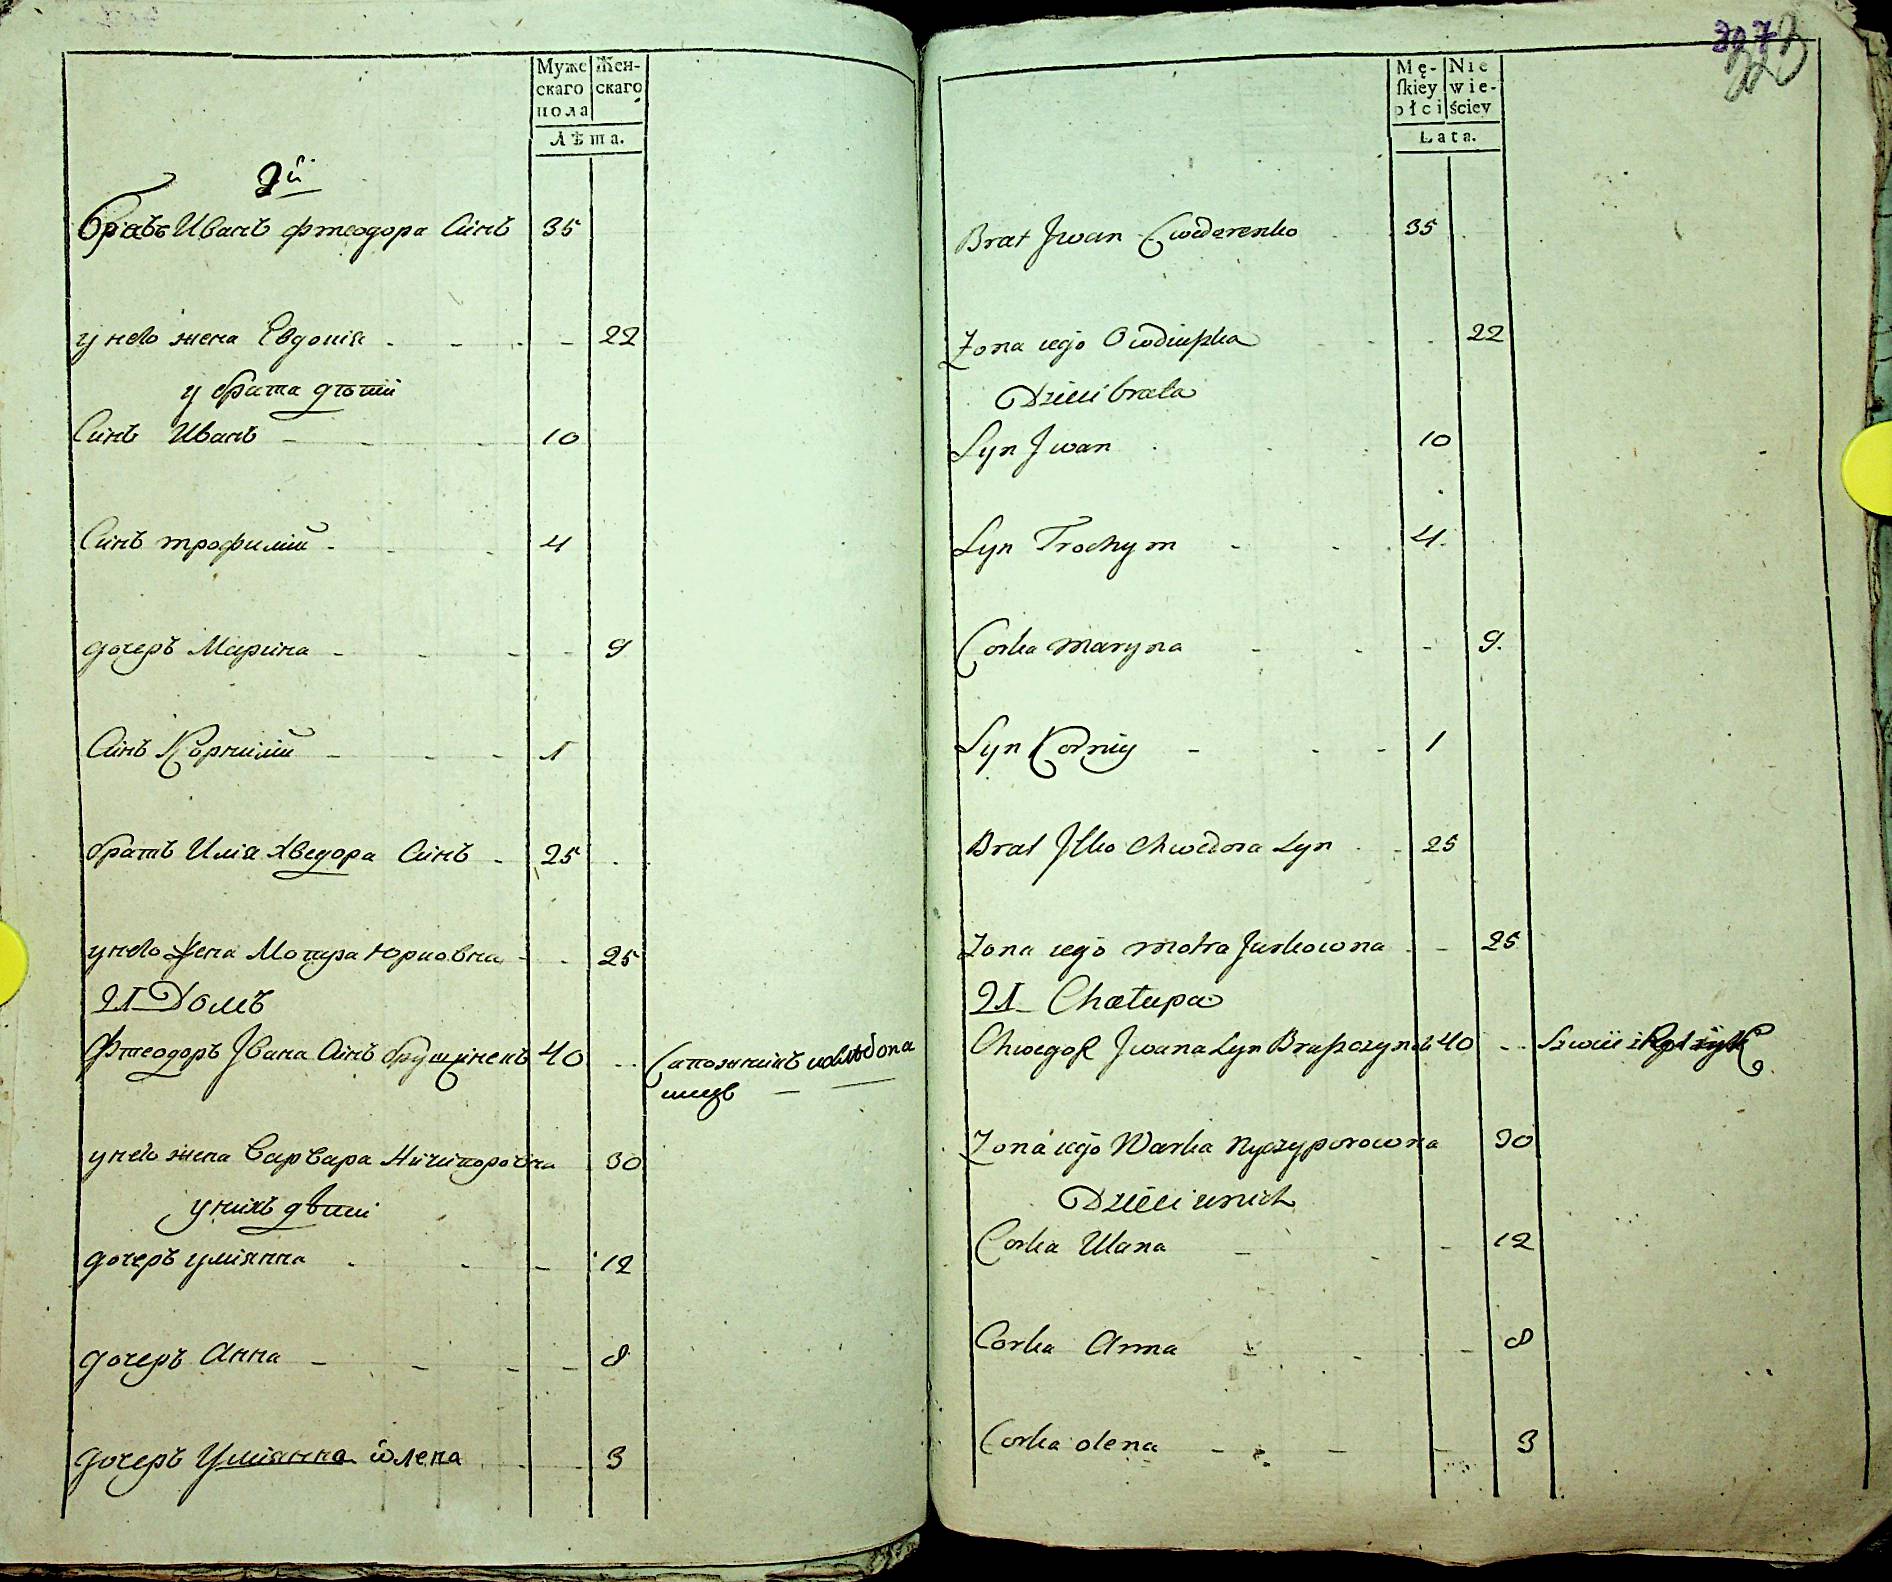 Муже
скаго
пола
Жен-
скаго
Лѣта.
2й
братъ Иванъ Фтеодора Синъ 35
у него жена Евдокия - - - - 22
у брата дѣти
Синъ Иванъ - - - 10
Синъ трофимій - - - 4
дочеръ Марина - - - - 9
Синъ Корнилій - - - 1
братъ Илия Хведора Синъ - 25
у него жена Мотра Юрковна - - 25
21 Домъ
Фтеодоръ Ивана Синъ 40 Сапожникъ
у него жена Варвара Ничипоровна 30
у нихъ дѣти
дочеръ улиянна - - - 12
дочеръ Анна - - - - 8
дочеръ Улиянна олена 3
327
Mę-
ſkiey
płci
Nie
wie-
ściey
Lata.
Brat Jwan Chwederenko 35
Zona iego Owdiuszka 22
Dzieci brata
Syn Jwan 10
Syn Trochym - - 4.
Corka maryna - - - 9.
Syn Korniy - - - 1
Brat Jlko Chwedora Syn - 25
Zona iego motra Jurkowna - - 25
21 Chałupa
Jwana Syn 40 - -
Zona iego Warka Nyczyporowna 30
Dzieci unich
Corka Ulana - - - 12
Corka Anna - - - 8
Corka olena - - - - 3